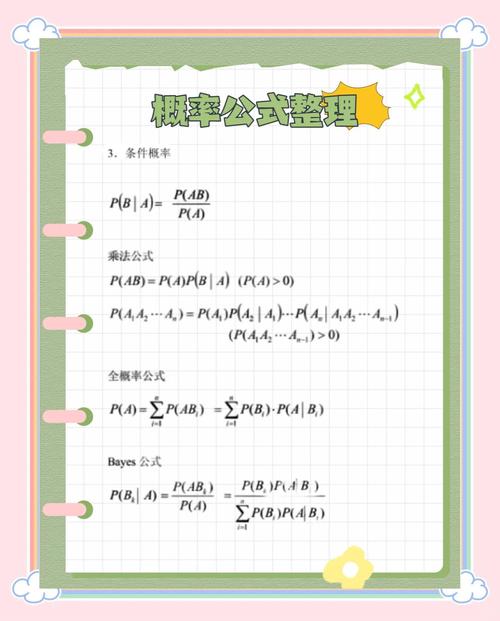 概率公式整理
3．条件概率
P(B | A)= P(AB)/P(A)
乘法公式
P(AB)=P(A)P(B | A) (P(A)>0)
P(A₁A₂⋯Aₙ)=P(A₁)P(A₂ | A₁)⋯P(Aₙ | A₁A₂⋯Aₙ₋₁)
(P(A₁A₂⋯Aₙ₋₁)>0)
全概率公式
P(A)=∑ⁿᵢ₌₁P(ABᵢ) =∑ⁿᵢ₌₁P(Bᵢ)·P(A|Bᵢ)
Bayes 公式
P(Bₖ| A)=P(ABₖ)/P(A) =P(Bₖ)P(A|Bₖ)/∑ⁿᵢ₌₁P(Bᵢ)P(A|Bᵢ)